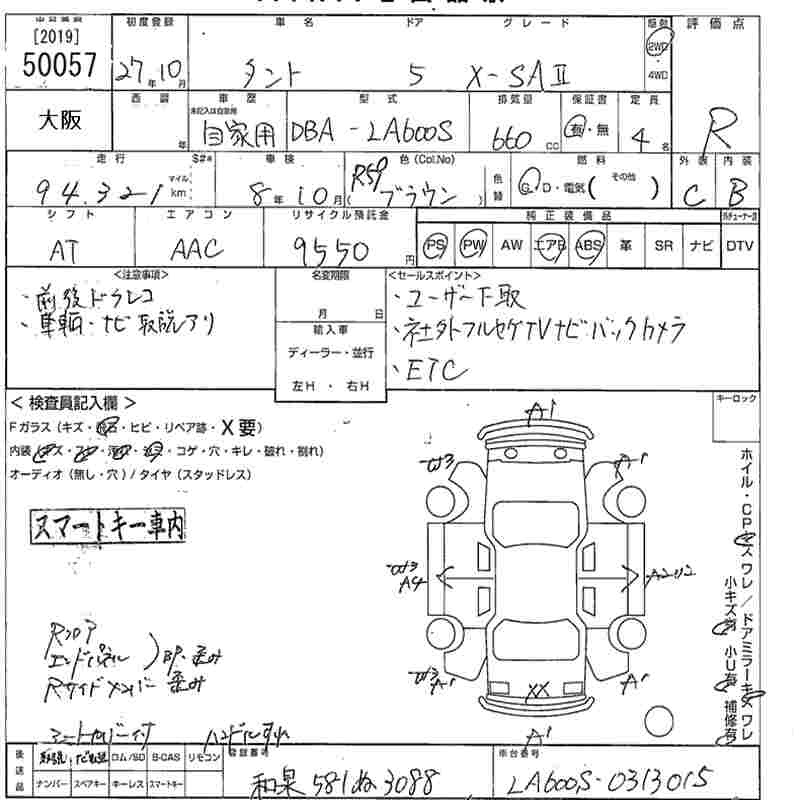 [2019]
50057
初度登録
27年10月
車名
タント
ドア
5
グレード
X-SAⅡ
駆動
2WD
4WD
評価点
R
大阪
西暦
年
車歴
未記入は自家用
自家用
型式
DBA-LA600S
排気量
660cc
保証書
有・無
定員
4名
走行
S#*
94,321
マイル
km
車検
8年10月
色(Col.No)
R59
ブラウン
色替
燃料
G・D・電気( その他 )
外装
C
内装
B
シフト
AT
エアコン
AAC
リサイクル預託金
9550円
純正装備品
PS PW AW エアB ABS 革 SR ナビ DTV
<注意事項>
・前後ドラレコ
・車輌・ナビ取説アリ
名変期限
月 日
輸入車
ディーラー・並行
左H・右H
<セールスポイント>
・ユーザー下取
・社外フルセグTVナビ・バックカメラ
・ETC
<検査員記入欄>
Fガラス(キズ・飛石・ヒビ・リペア跡・X要)
コゲ・穴・キレ・破れ・割れ)
オーディオ(無し・穴)/タイヤ(スタッドレス)
キーロック
スマートキー車内
A1
A1
A4
A1
A1
XX
A1
Rフロア
エンドパネル )BP・歪み
Rサイドメンバー歪み
シートカバー付
ハンドルすれ
ホイル・CPキズ ワレ/ドアミラーキズ ワレ
小キズ有 小U有 補修有
後送品
取説 ナビ取説 ロム/SD B-CAS リモコン
ナンバー スペアキー キーレス スマートキー
登録番号
和泉 581 ぬ 3088
車台番号
LA600S-0313015